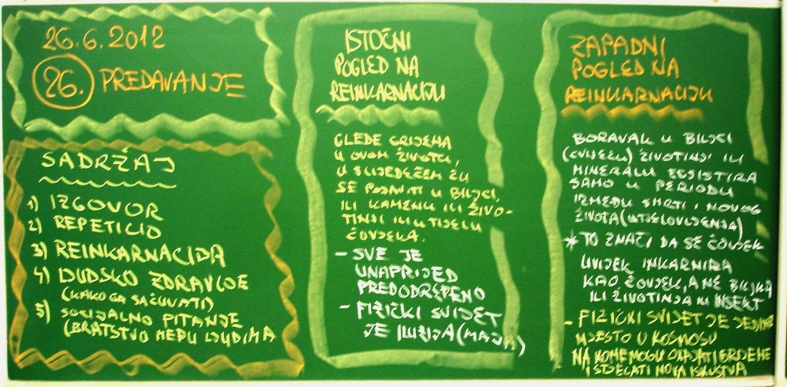 26.6.2012
26. PREDAVANJE
SADRŽAJ
1) IZGOVOR
2) REPETICIO
3) REINKARNACIDA
4) LJUDSKO ZDRAVLJE
(KAKO GA SAČUVATI)
5) SOCIJALNO PITANJE
(BRATSTVO MEĐU LJUDIMA
ISTOČNI
POGLED NA
REINKARNACIJU
GLEDE GRIJEHA
U OVOM ŽIVOTU,
U SLIJEDEĆEM ĆU
SE POJAVITI U BILJCI,
ILI KAMENU ILI ŽIVO-
TINJI ILI U TIJELU
ČOVJEKA.
- SVE JE
UNAPRIJED
PREDODREĐENO
- FIZIČKI SVIJET
JE ILUZIJA (MAJA)
ZAPADNI
POGLED NA
REINKARNACIJU
BORAVAK U BILJCI
(CVIJEĆU) ŽIVOTINJI ILI
MINERALU EGSISTIRA
SAMO U PERIODU
IZMEĐU SMRTI I NOVOG
ŽIVOTA (UTJELOVLJENJA)
* TO ZNAČI DA SE ČOVJEK
UVIJEK INKARNIRA
KAO ČOVJEK, A NE BILJKA
ILI ŽIVOTINJA ILI INSEKT
- FIZIČKI SVIJET JE JEDINO
MJESTO U KOSMOSU
NA KOME MOGU OKAJATI GRIJEHE
I STJECATI NOVA ISKUSTVA